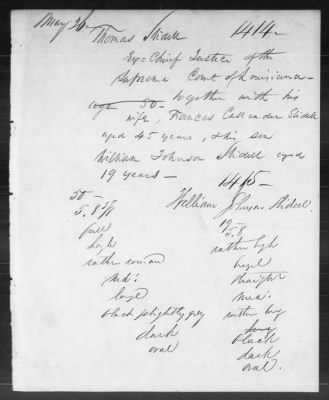 May 26
Thomas Slidell 1414-
Ex-Chief Justice of the
Supreme Court of Louisiana-
age 50- together with his
wife, Frances Callender Slidell
aged 45 years, & his son
William Johnson Slidell aged
19 years-
1415-
William Johnson Slidell
50-
5.8 3/8
full
high
rather roman
med:
large
black slightly grey
dark
oval
19
5.8
rather high
hazel
straight
med:
rather large
black
dark
oval.